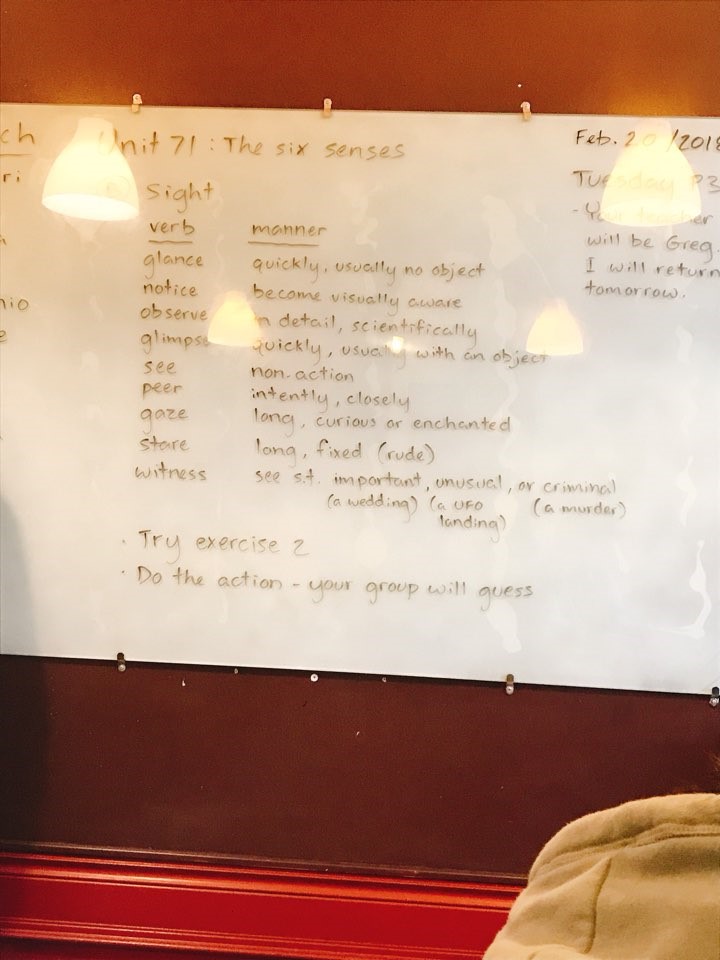 ch
ri
nio
e
Unit 71 : The six senses
Sight
verb manner
glance quickly, usually no object
notice become visually aware
observe in detail, scientifically
glimpse quickly, usually with an object
see non-action
peer intently, closely
gaze long, curious or enchanted
stare long, fixed (rude)
witness see s.t. important, unusual, or criminal
(a wedding) (a UFO (a murder)
landing)
· Try exercise 2
· Do the action - your group will guess
Feb. 20 /2018
Tuesday P3
- Your teacher
will be Greg.
I will return
tomorrow.